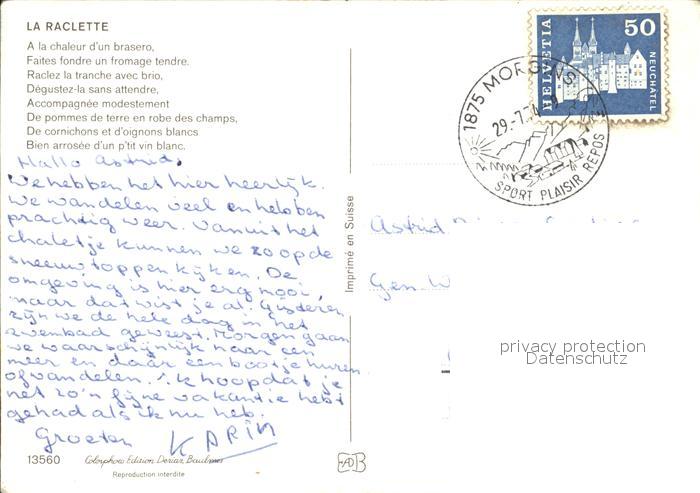 LA RACLETTE
A la chaleur d'un brasero,
Faites fondre un fromage tendre.
Raclez la tranche avec brio,
Dégustez-la sans attendre,
Accompagnée modestement
De pommes de terre en robe des champs,
De cornichons et d'oignons blancs
Bien arrosée d'un p'tit vin blanc.
Hallo Astrid,
We hebben het hier heerlijk.
We wandelen veel en hebben
prachtig weer. Vanuit het
chaletje kunnen we zo op de
sneeuwtoppen kijken. De
omgeving is hier erg mooi,
maar dat wist je al. Gisteren
zijn we de hele dag in het
zwembad geweest. Morgen gaan
we waarschijnlijk naar een
meer en daar een bootje huren
of wandelen. Ik hoop dat je
net zo'n fijne vakantie hebt
gehad als ik nu heb.
Groeten KARIN
13560
Colorphoto Edition Deriaz, Baulmes
Reproduction interdite
Imprimé en Suisse
HELVETIA
50
NEUCHÂTEL
1875 MORGINS
29.-7.74
SPORT PLAISIR REPOS
Astrid
Gen. W
privacy protection
Datenschutz